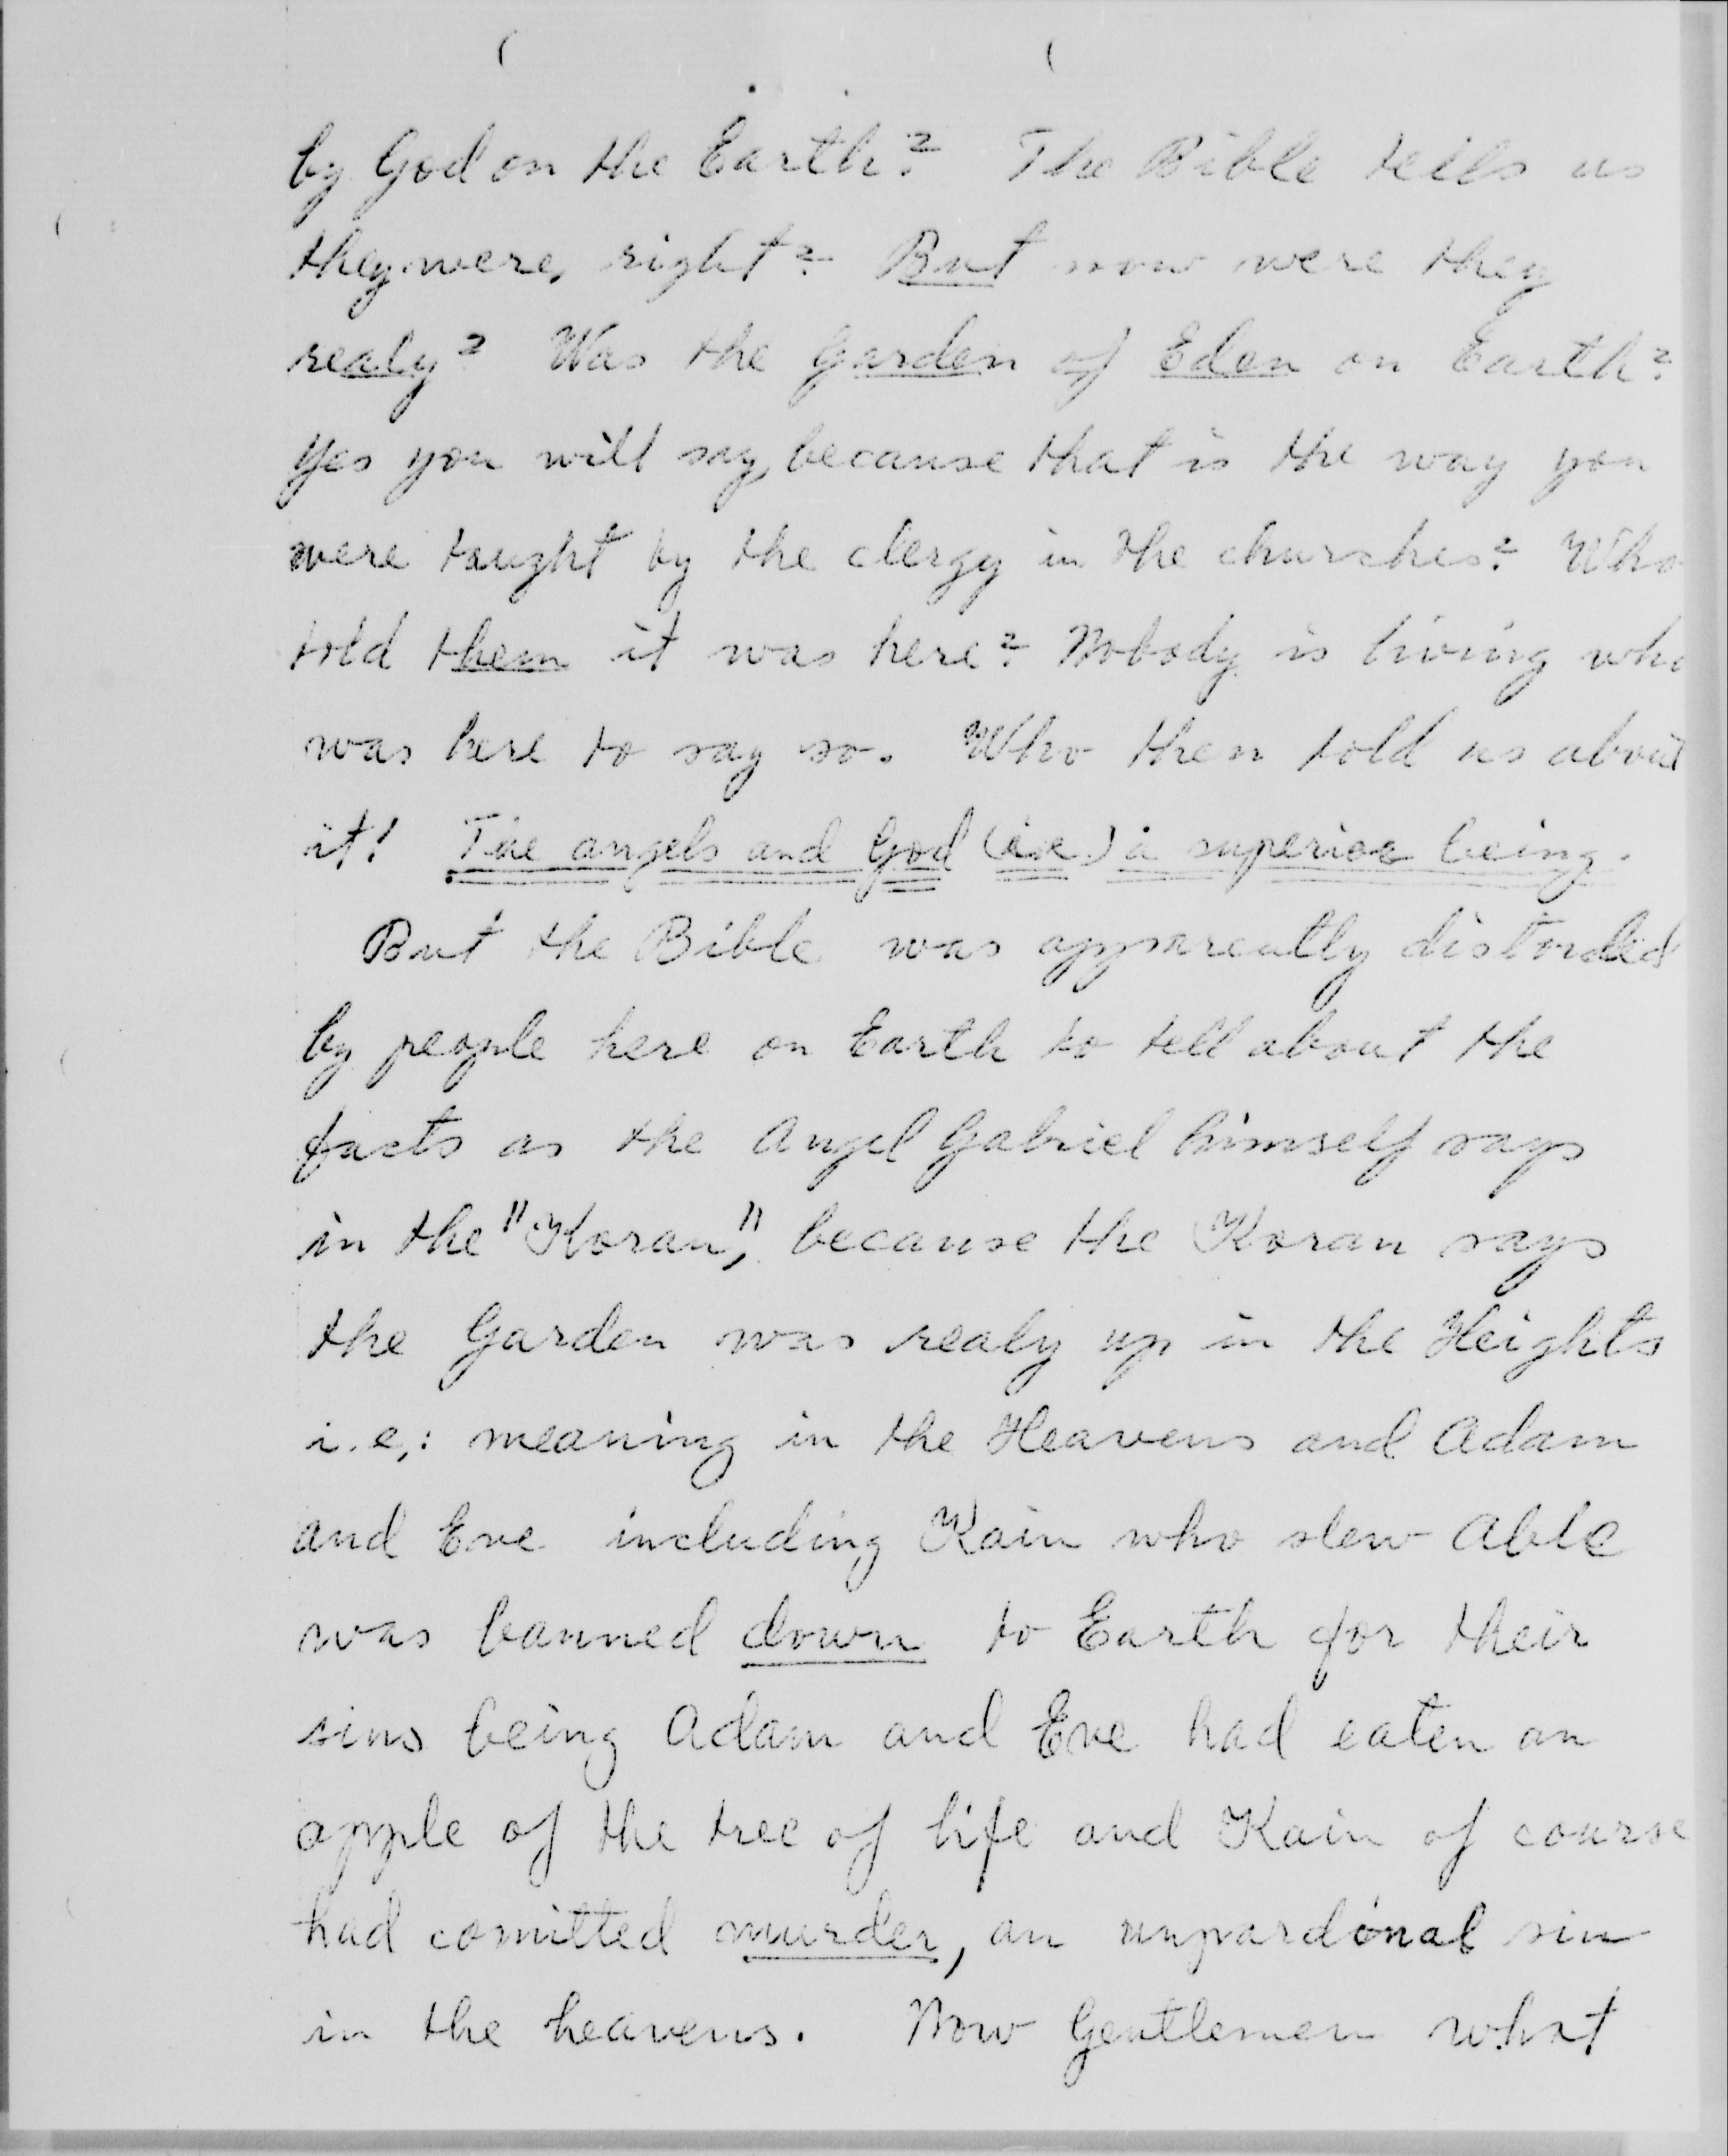 by God on the Earth? The Bible tells us
they were, right? But now were they
realy? Was the Garden of Eden on Earth?
Yes you will say, because that is the way you
were taught by the clergy in the churches? Who
told them it was here? Nobody is living who
was here to say so. Who then told us about
it! The angels and God (i.e.) a superior being.
But the Bible was apparently distorded
by people here on Earth to tell about the
facts as the Angel Gabriel himself says
in the "Koran," because the Koran says
the Garden was realy up in the Heights
i.e,: meaning in the Heavens and Adam
and Eve including Kain who slew Able
was banned down to Earth for their
sins being Adam and Eve had eaten an
apple of the tree of life and Kain of course
had comitted murder, an unpardonal sin
in the heavens. Now Gentlemen what